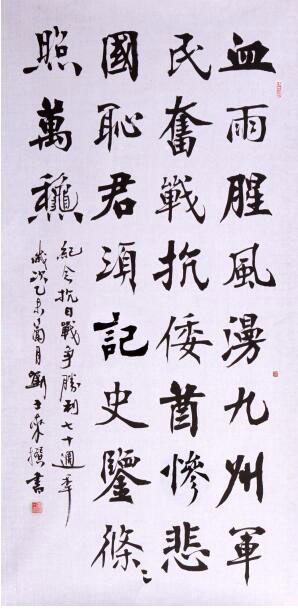 血雨腥風漫九州軍
民奮戰抗倭酋慘悲
國恥君須記史鑒條〻
照萬龝
紀念抗日戰爭勝利七十週年
歲次乙未蘭月劉士來撰書